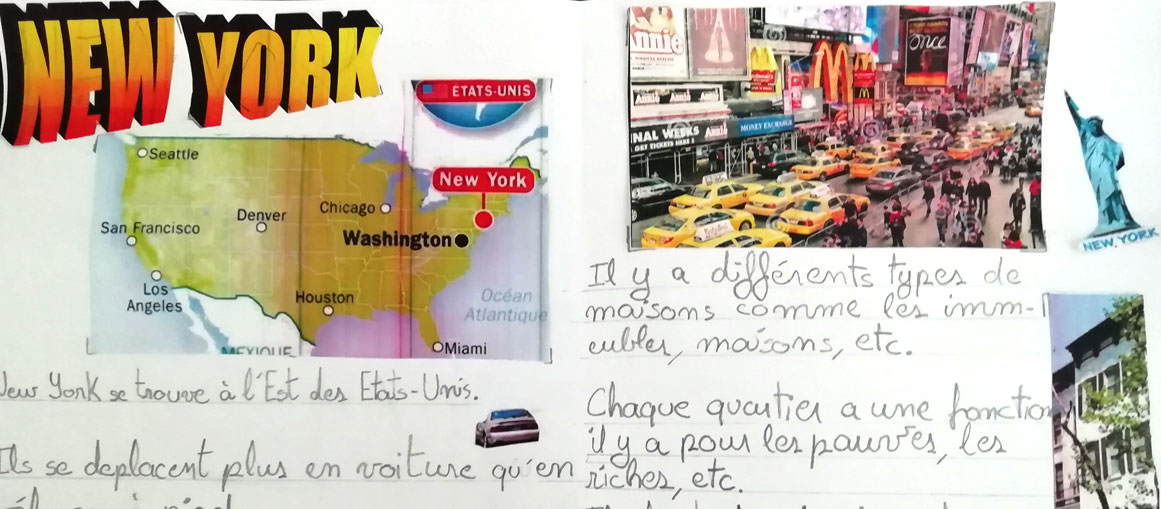 NEW YORK
ETATS-UNIS
Seattle
New York
Chicago
Denver
San Francisco
Washington
Los
Angeles
Houston
Océan
Atlantique
MEXIQUE
Miami
New York se trouve à l'Est des Etats-Unis.
Ils se deplacent plus en voiture qu'en
Annie
McDonald's
Once
Annie
NAL WEEKS Annie
GET TICKETS HERE
MONEY EXCHANGE
NEW YORK
Il y a différents types de
maisons comme les imm-
eubles, maisons, etc.
Chaque quartier a une fonction
il y a pour les pauvres, les
riches, etc.